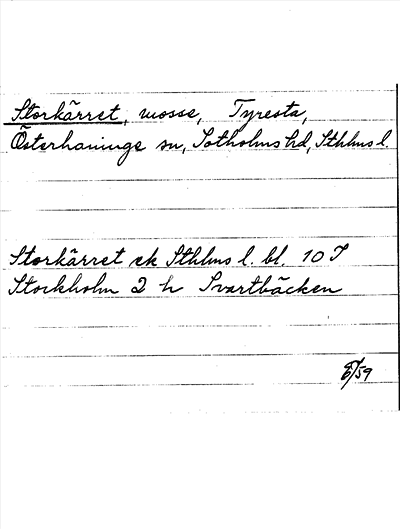 Storkärret, mosse, Tyresta,
Österhaninge sn, Sotholms hd, Sthlms l.
Storkärret ek Sthlms l. bl. 10 I
Stockholm 2 h Svartbäcken
/59